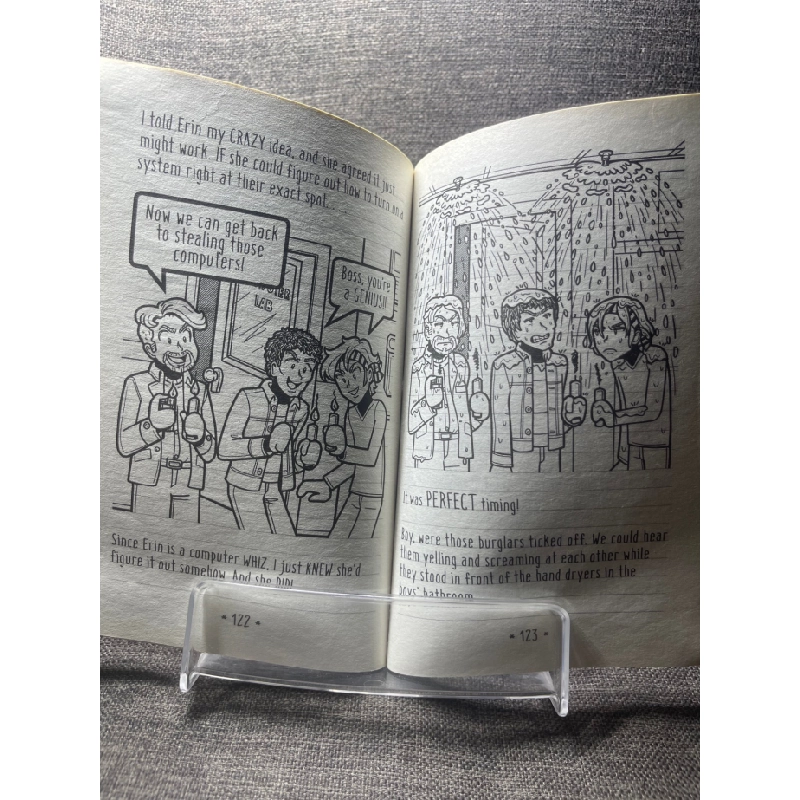 I told Erin my CRAZY idea, and she agreed it just
might work. IF she could figure out how to turn on a
system right at their exact spot...
Now we can get back
to stealing those
computers!
Boss, you're
a GENIUS!!
LAB
Since Erin is a computer WHIZ, I just KNEW she'd
figure it out somehow. And she DID!
• 122 •
It was PERFECT timing!
Boy, were those burglars ticked off. We could hear
them yelling and screaming at each other while
they stood in front of the hand dryers in the
boys' bathroom
• 123 •